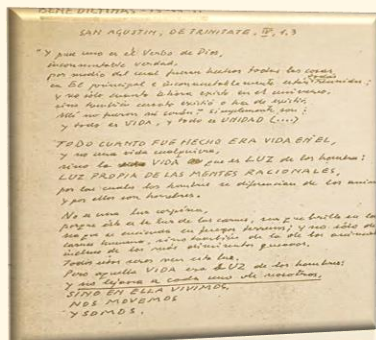 SAN AGUSTIN, DE TRINITATE, IV, 1, 3
"Y pues uno es el Verbo de Dios,
inconmutable verdad,
por medio del cual fueron hechas todas las cosas,
en Él principal e inconmutablemente están todas reunidas;
y no sólo cuanto ahora existe en el universo,
sino también cuanto existió o ha de existir.
Allí no fueron ni serán: simplemente son;
y todo es VIDA, y todo es UNIDAD (....)
TODO CUANTO FUE HECHO ERA VIDA EN EL,
y no una vida cualquiera,
sino la VIDA que es LUZ de los hombres:
LUZ PROPIA DE LAS MENTES RACIONALES,
por las cuales los hombres se diferencian de los
y por ellas son hombres.
No a una luz corpórea,
porque ésta es la luz de las carnes, ya que brilla en los
ya que se encienda en fuegos terrenos; y no sólo de
carnes humanas, sino también de la de los animales
incluso de los más diminutos gusanos.
Todos estos seres ven esta luz.
Pero aquella VIDA era LUZ de los hombres:
y no lejana a cada uno de nosotros,
SINO EN ELLA VIVIMOS,
NOS MOVEMOS
Y SOMOS.